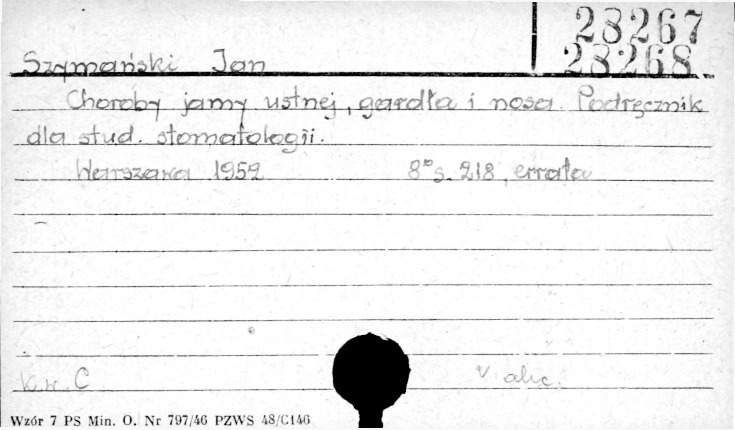 28267
28268
Szymański Jan
Choroby jamy ustnej, gardła i nosa. Podręcznik
dla stud. stomatologii.
Warszawa 1952 8° s. 218, errata
Kw. C v alic.
Wzór 7 PS Min. O. Nr 797/46 PZWS 48/C146